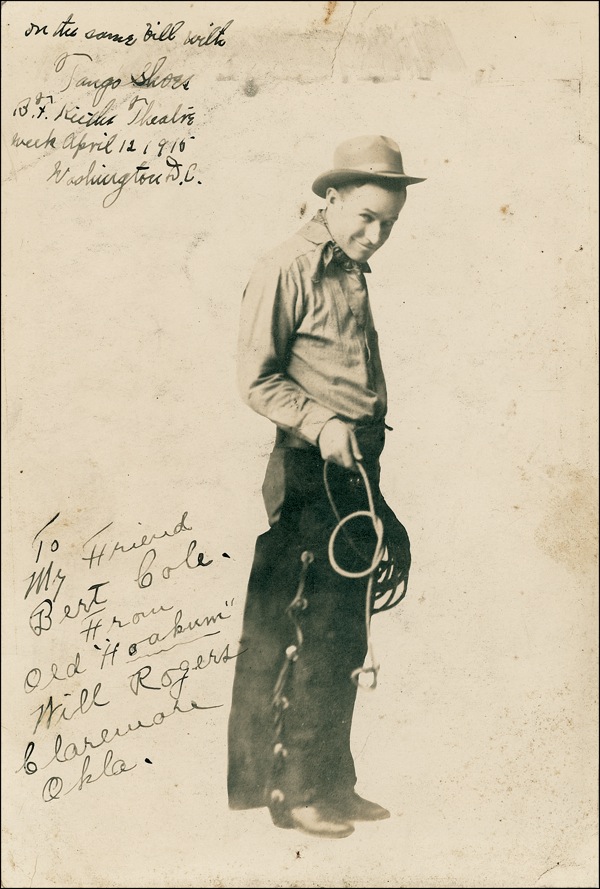 on the same bill with
Tango Shoes
B.F. Keiths Theatre
week April 12, 1915
Washington D.C.
To
My Friend
Bert Cole.
From
Old "Hoakum"
Will Rogers
Claremore
Okla.